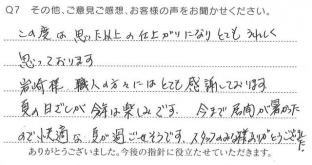 Q7 その他、ご意見ご感想、お客様の声をお聞かせください。
この度は思った以上の仕上がりになりとてもうれしく
思っております
岩崎様 職人の方々にはとても感謝しております
夏の日ざしが今年は楽しみです。今まで居間が暑かった
ので快適な夏が過ごせそうです、スタッフのみな様ありがとうございました
ありがとうございました。今後の指針に役立たせていただきます。